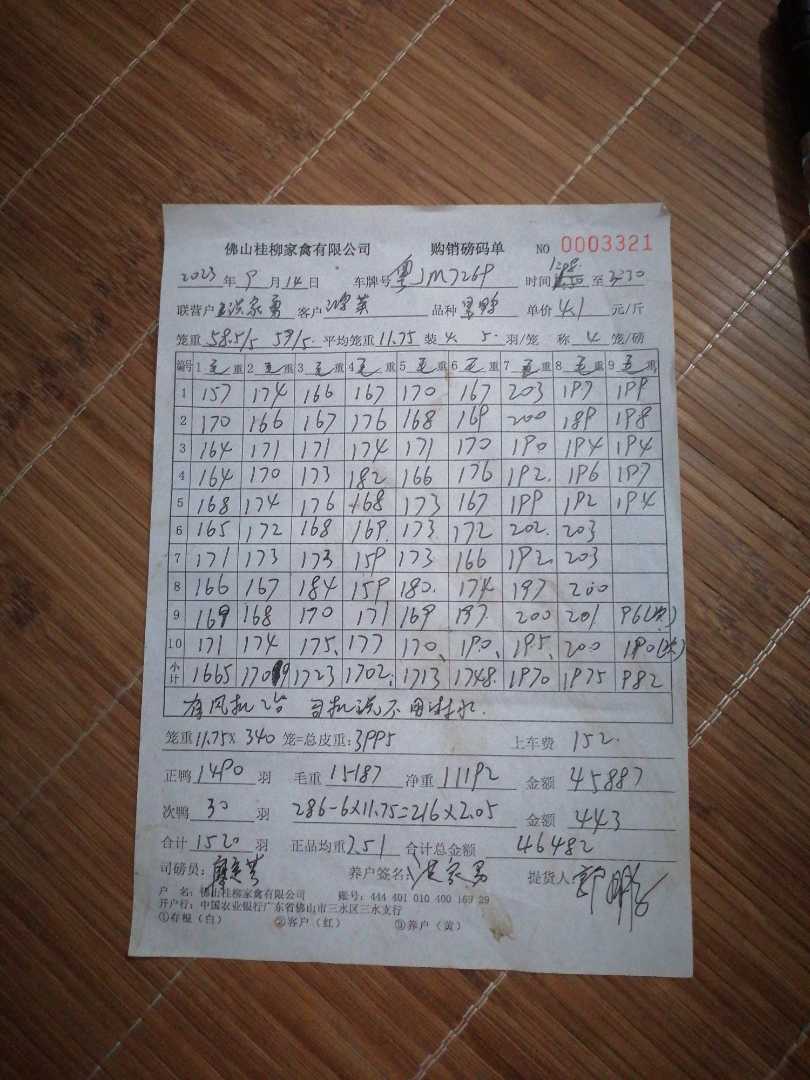 佛山桂柳家禽有限公司 购销磅码单 NO 0003321
2023 年 9 月 14 日 车牌号 粤JM7269 时间 至
联营户 洪家勇 客户 鸿英 品种 单价 4.1 元/斤
笼重 58.5/5 59/5 平均笼重 11.75 装 4. 5. 羽/笼 称 4 笼/磅
编号 1 毛 重 2 毛 重 3 毛 重 4 毛 重 5 毛 重 6 毛 重 7 毛 重 8 毛 重 9 毛 重
1 157 174 166 167 170 167 203 197 199
2 170 166 167 176 168 169 200 189 198
3 164 171 171 174 171 170 190 194 194
4 164 170 173 182 166 176 192. 196 197
5 168 174 176 168 173 167 199 192 194
6 165 172 168 169. 173 172 202. 203
7 171 173 173 159 173 166 192. 203
8 166 167 184 159 180. 174 197 200
9 169 168 170 171 169 197. 200 201 96(次)
10 171 174 175. 177 170. 190. 195. 200 190(次)
小计 1665 1709 1723 1702. 1713 1748. 1970 1975 982
有风机 司机说不用
笼重 11.75 X 340 笼=总皮重: 3995 上车费 152.
正鸭 1490 羽 毛重 15187 净重 11192 金额 45887
次鸭 30 羽 286-6×11.75=216×2.05 金额 443
合计 1520 羽 正品均重 7.51 合计总金额 46482
司磅员: 养户签名: 洪家勇 提货人:
户 名: 佛山桂柳家禽有限公司 账号: 444 401 010 400 169 29
开户行: 中国农业银行广东省佛山市三水区三水支行
①存根（白） ②客户（红） ③养户（黄）